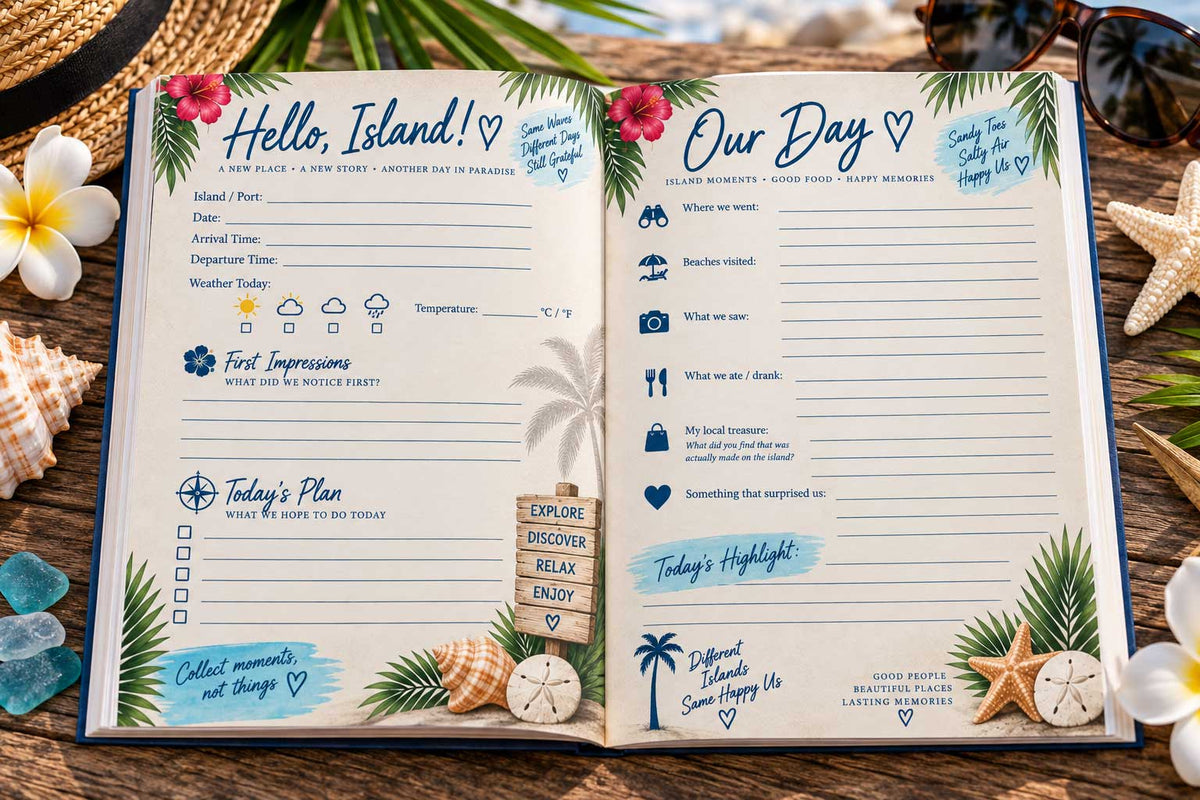 Hello, Island!
A NEW PLACE • A NEW STORY • ANOTHER DAY IN PARADISE
Same Waves
Different Days
Still Grateful
Island / Port:
Date:
Arrival Time:
Departure Time:
Weather Today:
Temperature: °C / °F
First Impressions
WHAT DID WE NOTICE FIRST?
Today's Plan
WHAT WE HOPE TO DO TODAY
EXPLORE
DISCOVER
RELAX
ENJOY
Collect moments,
not things
Our Day
ISLAND MOMENTS • GOOD FOOD • HAPPY MEMORIES
Sandy Toes
Salty Air
Happy Us
Where we went:
Beaches visited:
What we saw:
What we ate / drank:
My local treasure:
What did you find that was
actually made on the island?
Something that surprised us:
Today's Highlight:
Different
Islands
Same Happy Us
GOOD PEOPLE
BEAUTIFUL PLACES
LASTING MEMORIES